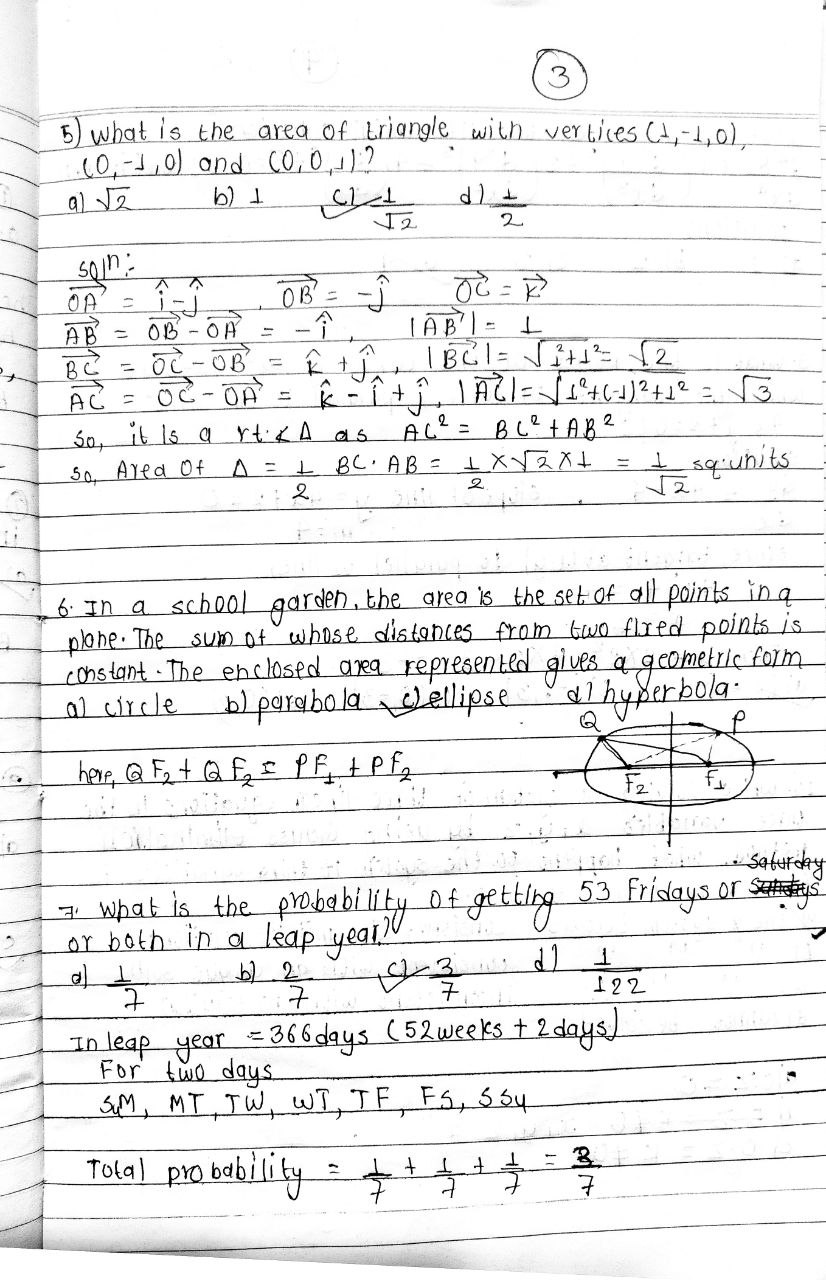 3
5) What is the area of triangle with vertices (1,-1,0),
(0,-1,0) and (0,0,1)?
a) √2 b) 1 c) 1/√2 d) 1/2
soln:
OA→ = î-ĵ , OB→ = -ĵ OC→ = k→
AB→ = OB→ - OA→ = -î , |AB→| = 1
BC→ = OC→ - OB→ = k̂ + ĵ , |BC→| = √1²+1² = √2
AC→ = OC→ - OA→ = k̂ - î + ĵ, |AC→| = √1²+(-1)²+1² = √3
So, it is a rt.∠Δ as AC² = BC² + AB²
So, Area Of Δ = 1/2 BC. AB = 1/2 × √2 × 1 = 1/√2 sq.units
6. In a school garden, the area is the set of all points in a
plane. The sum of whose distances from two fixed points is
constant. The enclosed area represented gives a geometric form
a) circle b) parabola c) ellipse d) hyperbola.
Q P
here, QF₂ + QF₂ = PF₁ + PF₂
F₂ F₁
Saturday
7. What is the probability of getting 53 Fridays or
or both in a leap year?
a) 1/7 b) 2/7 c) 3/7 d) 1/122
In leap year = 366days (52weeks + 2days)
For two days
SuM, MT, TW, WT, TF, FS, SSu
Total probability = 1/7 + 1/7 + 1/7 = 3/7